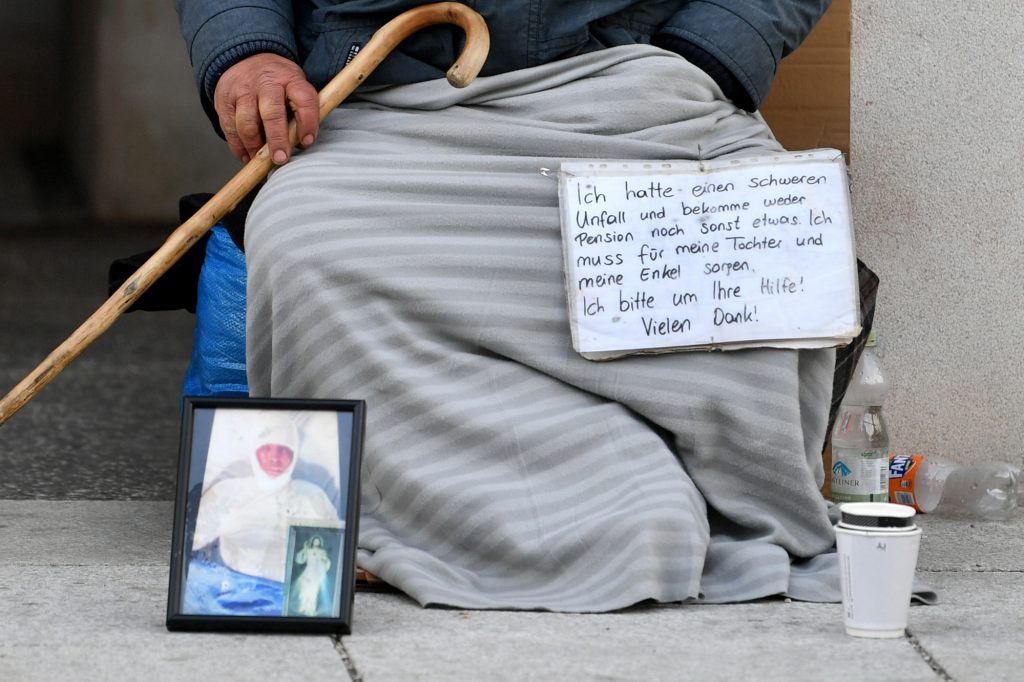 Ich hatte einen schweren
Unfall und bekomme weder
Pension noch sonst etwas. Ich
muss für meine Tochter und
meine Enkel sorgen.
Ich bitte um Ihre Hilfe!
Vielen Dank!
FANTA